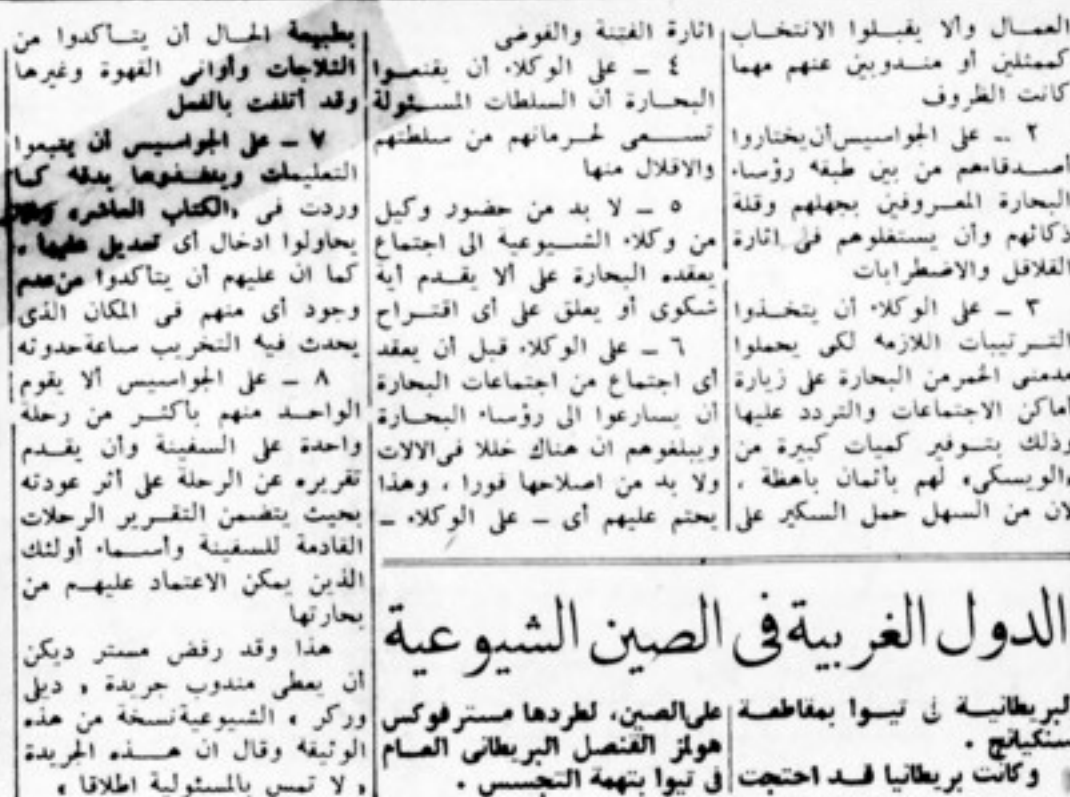 العمـال وألا يقبـلوا الانتخـاب
كممثلين أو منـدوبين عنهم مهما
كانت الظروف
٢ ــ على الجواسيس أن يختاروا
أصـدقاءهم من بين طبقه رؤساء
البحارة المعـروفين بجهلهم وقلة
ذكائهم وأن يستغلوهم فى إثارة
القلاقل والاضطرابات
٣ ــ على الوكلاء أن يتخـذوا
التــرتيبات اللازمه لكى يحملوا
مدمنى الخمر من البحارة على زيارة
أماكن الاجتماعات والتردد عليها
وذلك بتـوفير كميات كبيرة من
«الويسكى» لهم بأثمان باهظة ،
لان من السهل حمل السكير على
اثارة الفتنة والفوضى
٤ ــ على الوكلاء أن يقنعـوا
البحـارة أن السلطات المسـئولة
تسـعى لحـرمانهم من سـلطتهم
والاقلال منها
٥ ــ لا بد من حضور وكيل
من وكلاء الشـيوعية الى اجتماع
يعقده البحارة على ألا يقـدم أية
شكوى أو يعلق على أى اقتـراح
٦ ــ على الوكلاء قبل أن يعقد
أى اجتماع من اجتماعات البحارة
أن يسارعوا الى رؤساء البحـارة
ويبلغوهم ان هناك خللا فى الالات
ولا بد من اصلاحها فورا ، وهذا
يحتم عليهم أى ــ على الوكلاء ــ
بطبيعة الحال أن يتـأكدوا من
الثلاجات وأوانى القهوة وغيرها
وقد أتلفت بالفعل
٧ ــ على الجواسيس أن يتبعوا
التعليمات وينفـذوها بدقه كما
وردت فى «الكتاب العاشر» وألا
يحاولوا ادخال أى تعديل عليها ،
كما ان عليهم أن يتأكدوا من عدم
وجود أى منهم فى المكان الذى
يحدث فيه التخريب ساعة حدوثه
٨ ــ على الجواسيس ألا يقوم
الواحـد منهم بأكثـر من رحلة
واحدة على السفينة وأن يقـدم
تقريره عن الرحلة على أثر عودته
بحيث يتضمن التقـرير الرحلات
القادمة للسفينة وأسـماء أولئك
الذين يمكن الاعتماد عليهـم من
بحارتها
هذا وقد رفض مستر ديكن
أن يعطى مندوب جريدة « ديلى
وركر » الشيوعية نسخة من هذه
الوثيقه وقال ان هـذه الجريدة
« لا تمس بالمسئولية اطلاقا »
الدول الغربية فى الصين الشيوعية
البريطانيـة فى تيـوا بمقاطعـة
سنكيانج .
وكانت بريطانيا قـد احتجت
على الصين، لطردها مستر فوكس
هولمز القنصل البريطانى العـام
فى تيوا بتهمة التجسس .